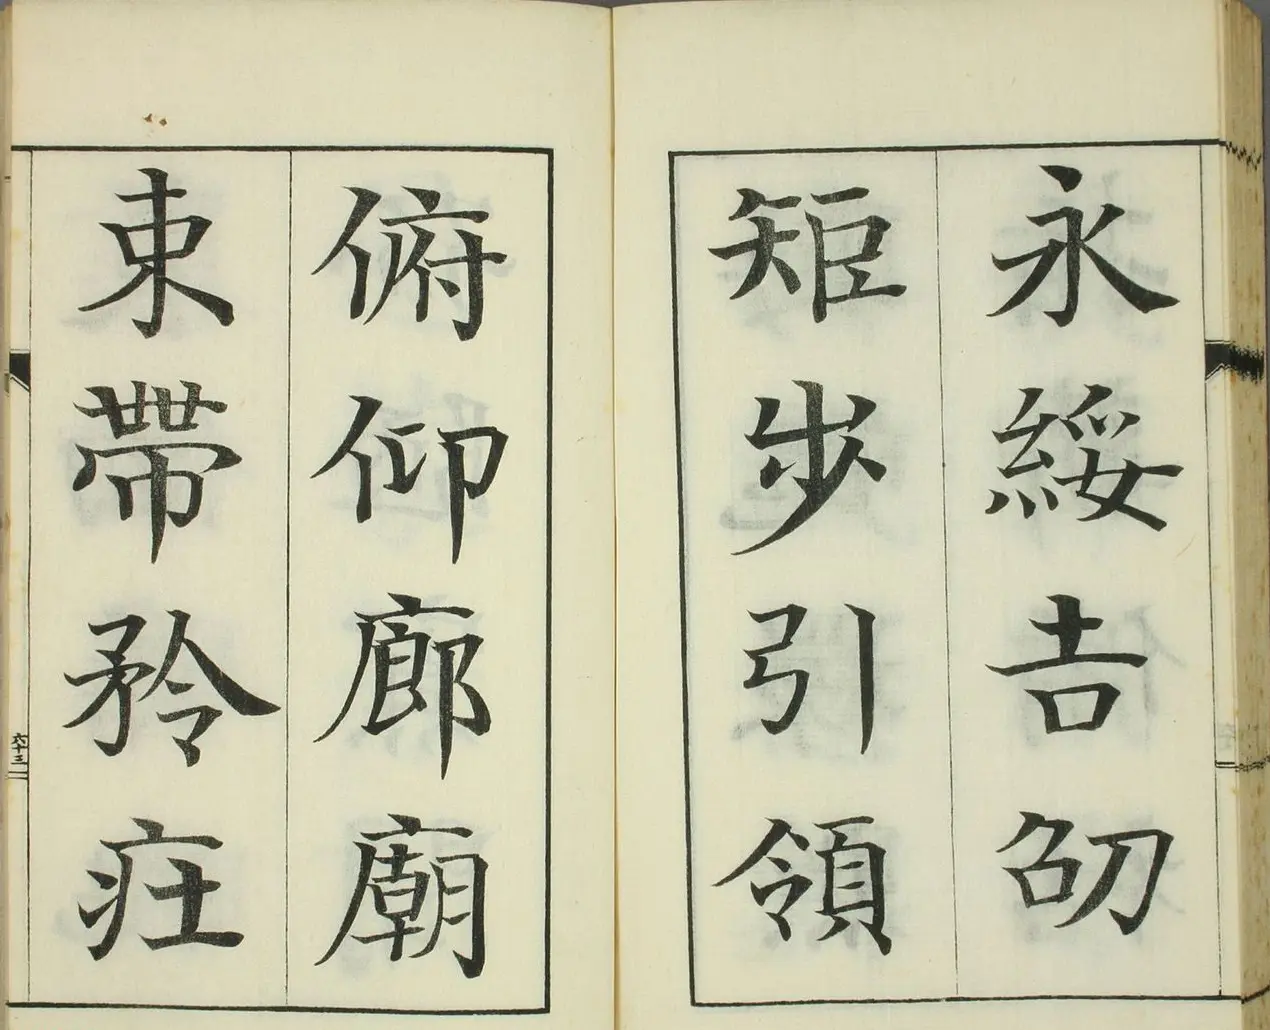 永綏𠮷劭
矩步引領
俯仰廊廟
束帶矜莊
六十三